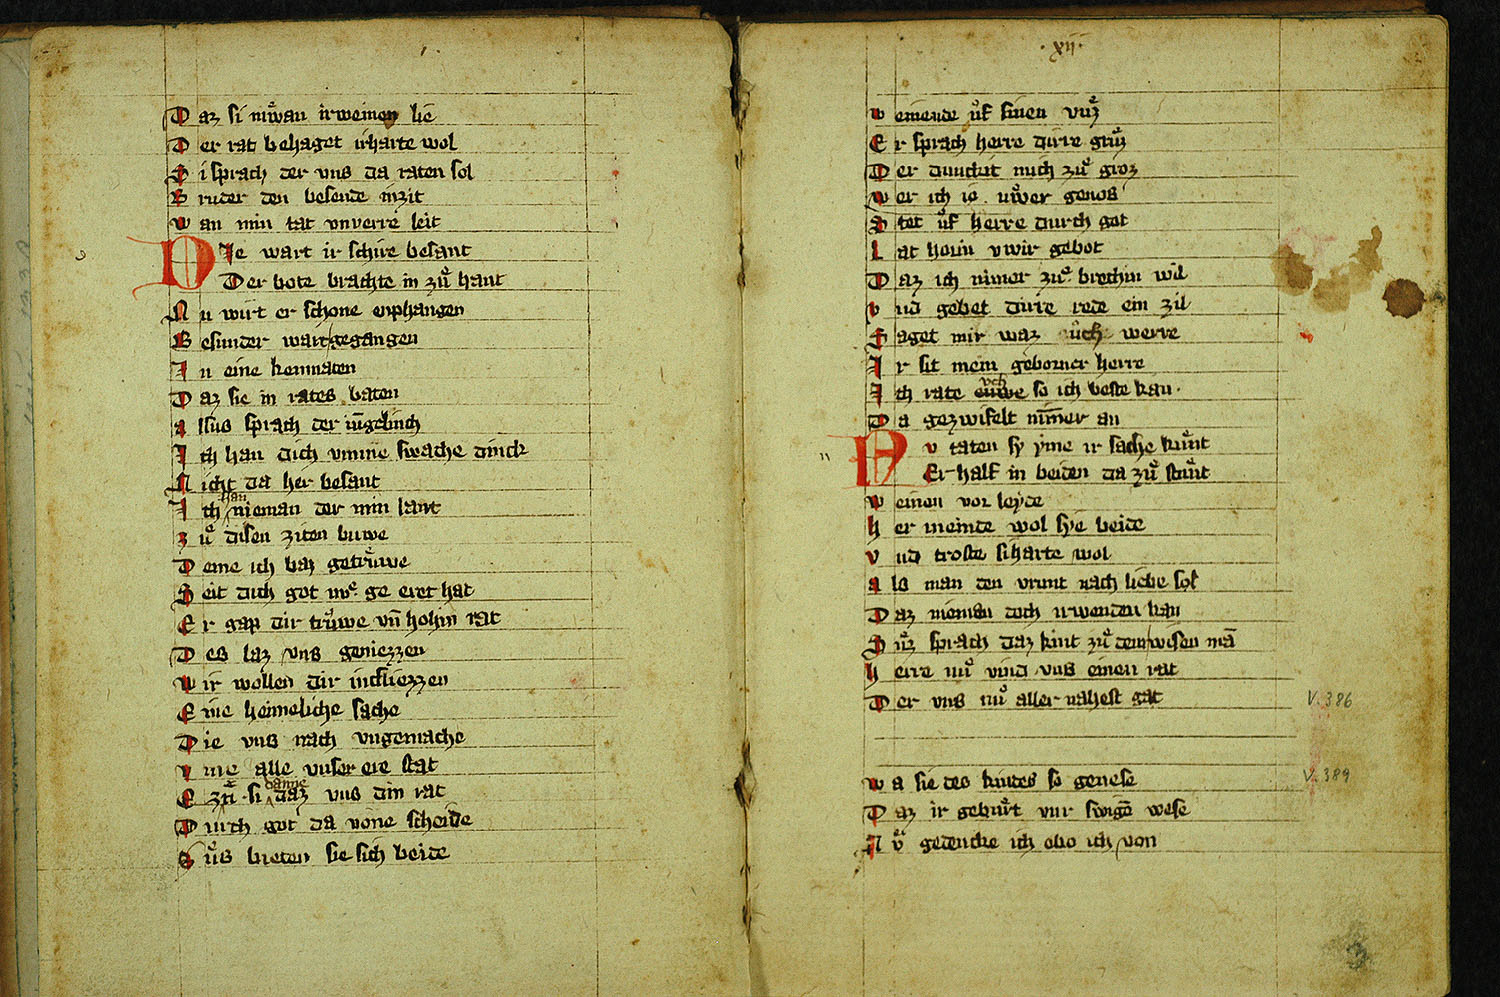 Daz si nuͦwan ir weinen lie
Der rat behaget ir harte wol
Si sprach der vns da raten sol
Bruder den besende inzit
wan min tat vnverre leit
Die wart ir schire besant
Der bote brachte in zuͦ hant
Nu wirt er schone enphangen
Besunder wart gegangen
In eine kemnaten
Daz sie in rates baten
alsus sprach der iu̅gelinch
Ich han dich vmme swache dinck
Nicht da her besant
Ich han nieman der min lant
zuͦ disen ziten buwe
Deme ich baz getruͦwe
Seit dich got ge eret hat
Er gap dir truͦwe vn̅ hohin rat
Des laz vns geniezzen
wir wollen dir insliezzen
Eine heimeliche sache
Die vns nach vngemache
vme alle vnser ere stat
si danne daz vns din rat
Durch got da vone scheide
Sus bieten sie sich beide
xij
weinende uͦf sinen vuͦz
Er sprach herre dirre gruͦz
Der dunckit mich zuͦ groz
wer ich ie uͦwer genos
Stet uͦf herre durch got
Lat horin vwir gebot
Daz ich nimer zuͦ brechin wil
vnd gebet dirre rede ein zil
Saget mir waz uͦch werre
Ir sit mein geborner herre
Ich rate vch so ich beste kan
Da gezwifelt ni̅mer an
Nu taten sy yme ir sache kuͦnt
Er half in beiden da zuͦ stuͦnt
weinen vor leyde
her meinde wol sye beide
vnd troste si harte wol
als man den vrunt nach liebe sol
Daz nieman doch irwenden kan
Suͦz sprach daz kint zuͦ dem wisen ma̅
herre nuͦ vind vns einen rat
Der vns nuͦ aller nahest gat
V. 386
wa sie des kindes so genese
V. 389
Daz ir geburt vur swige̅ wese
Nuͦ gedencke ich obo ich von